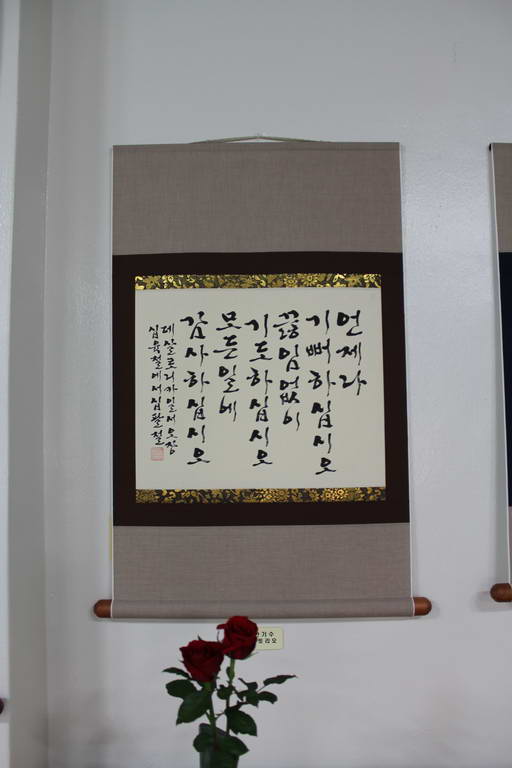 언제라
기뻐하십시오
끊임없이
기도하십시오
모든일에
감사하십시오
데살로니카일서오장
십육절에서십팔절